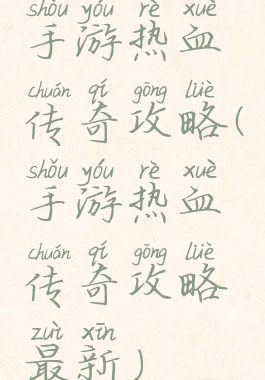 shǒu yóu rè xuè
手游热血
chuán qí gōng lüè
传奇攻略(
shǒu yóu rè xuè
手游热血
chuán qí gōng lüè
传奇攻略
zuì xīn
最新)